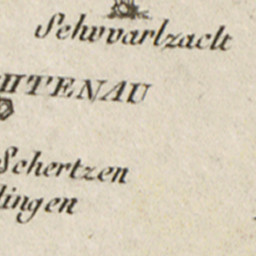 Schwvarlzaclt
HTENAU
Schertzen
lingen